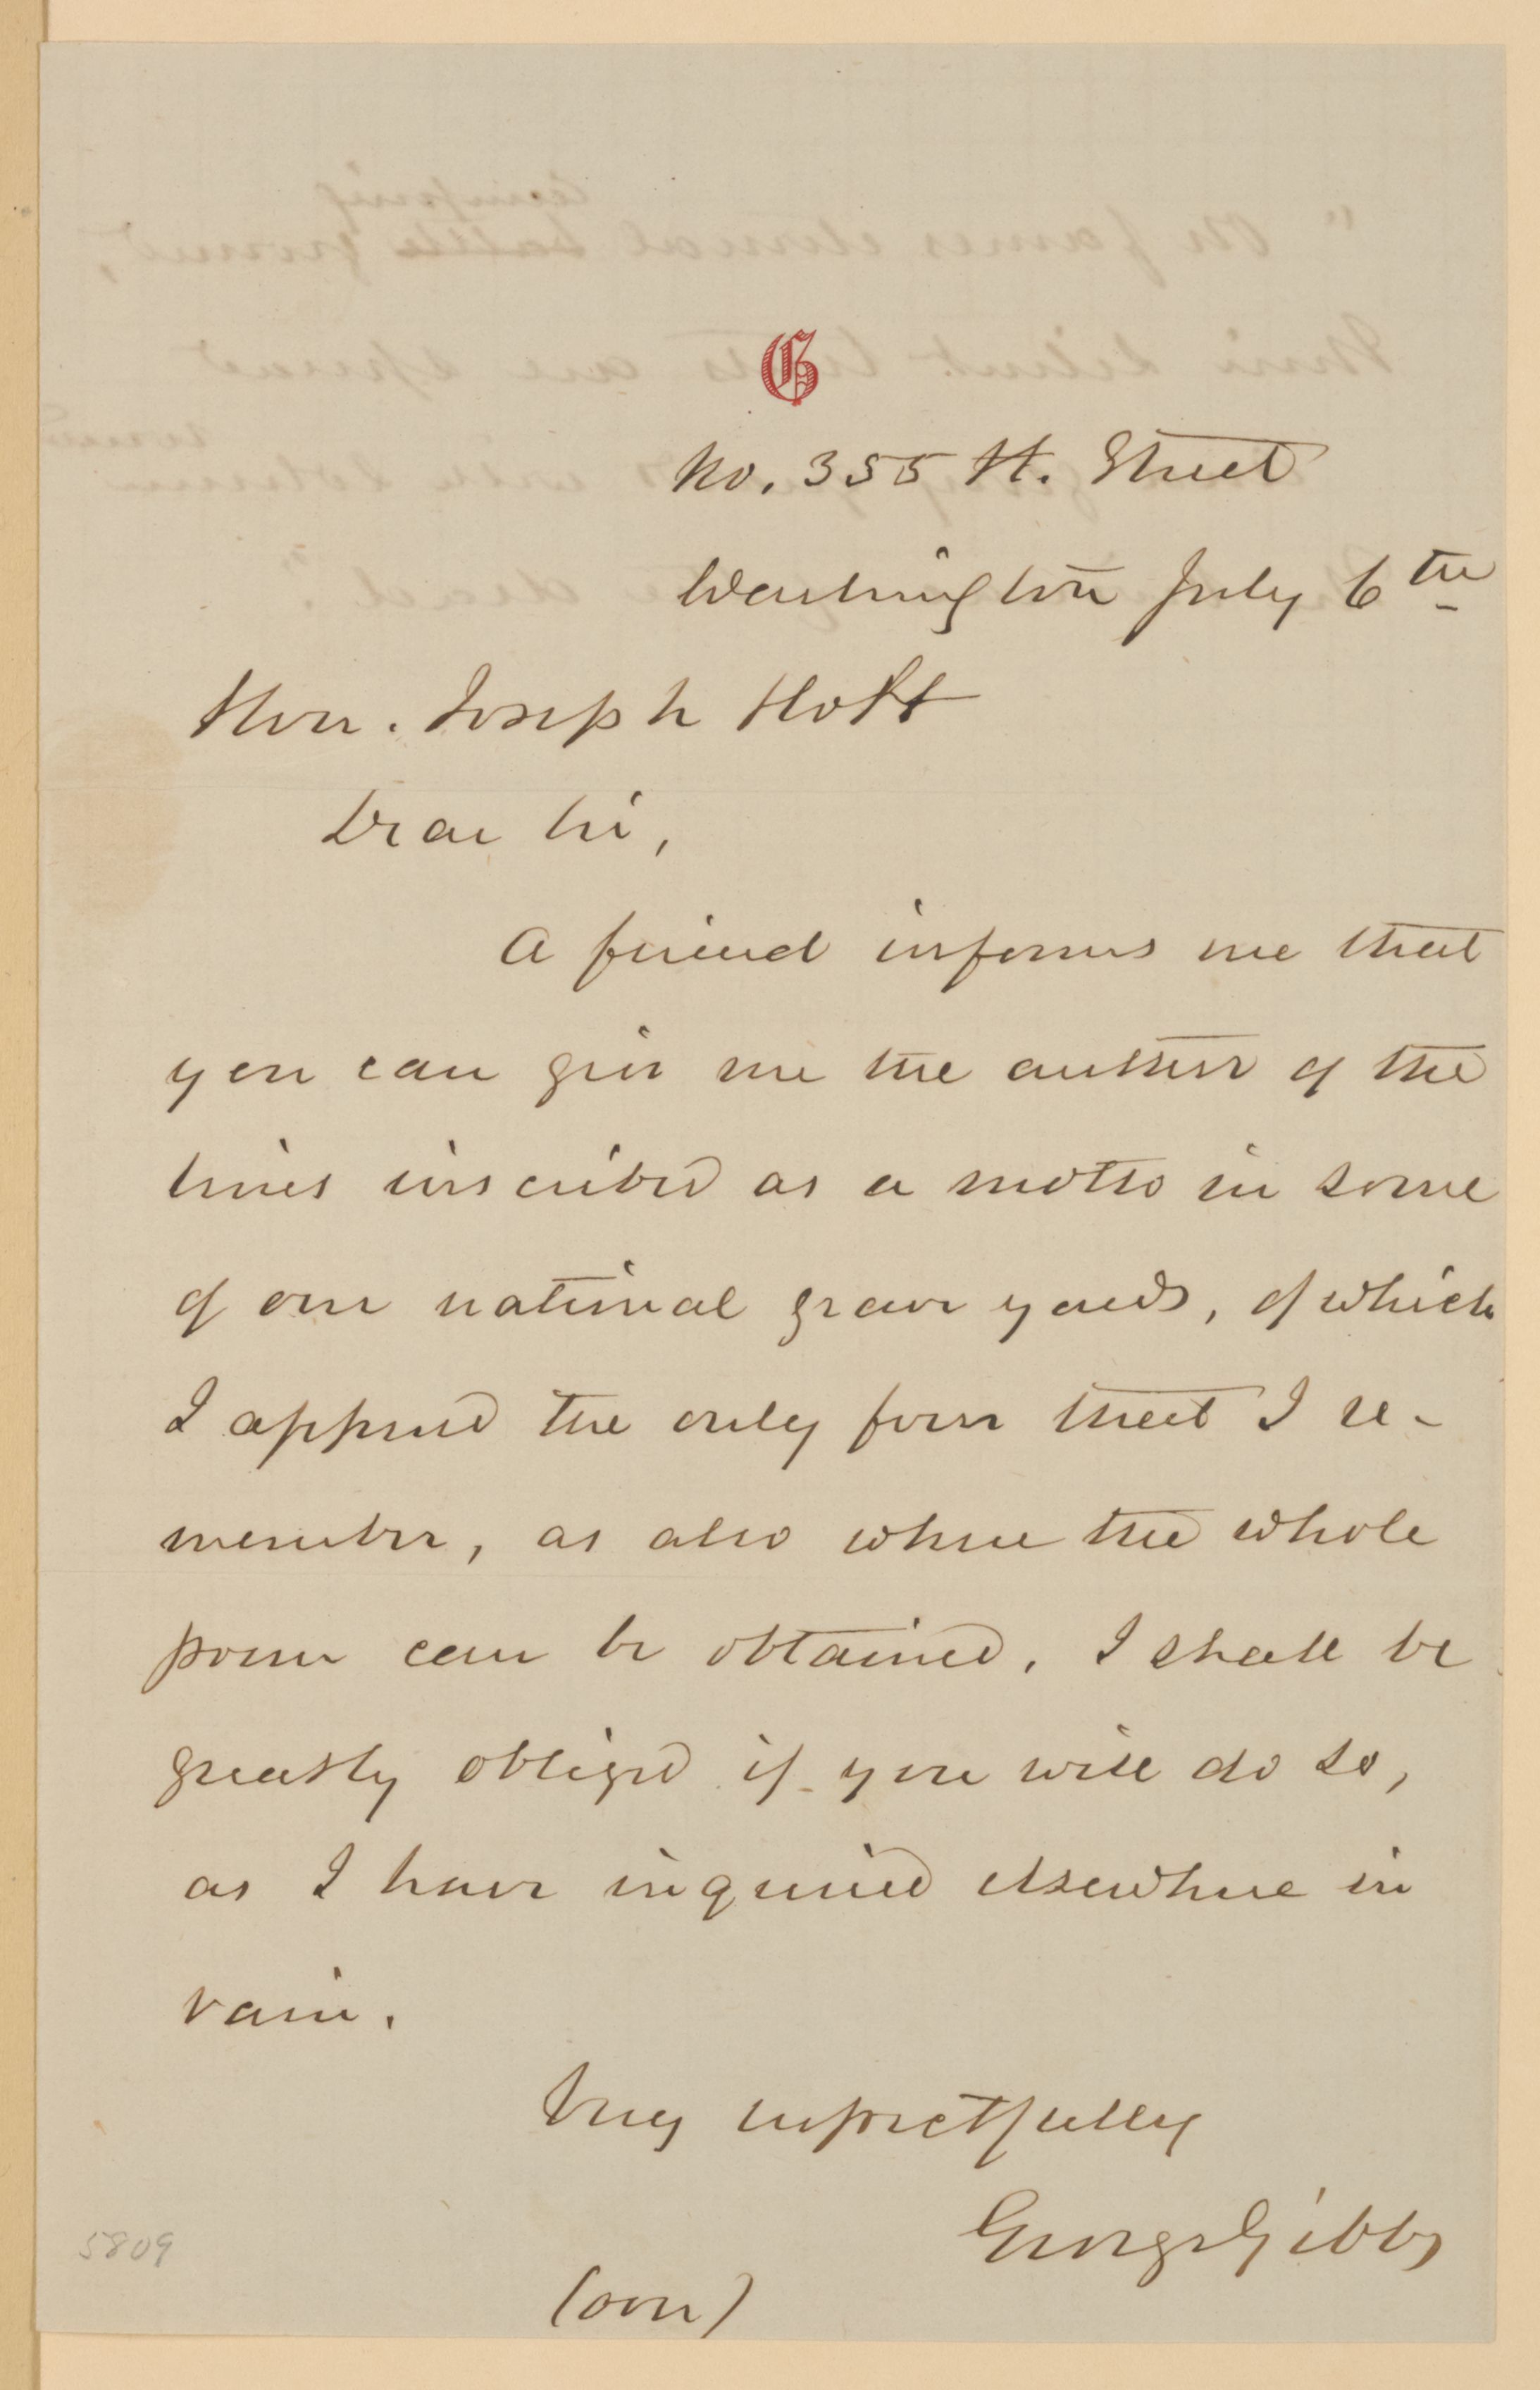 G
No. 355 H. Street
Washington July 6th
Hon. Joseph Holt
Dear Sir,
A friend informs me that
you can give me the author of the
lines inscribed as a motto in some
of our national grave yards, of which
I append the only four that I re-
member, as also where the whole
poem can be obtained. I shall be
greatly obliged if you will do so,
as I have inquired elsewhere in
vain.
Very respectfully
George Gibbs
(over)
5809